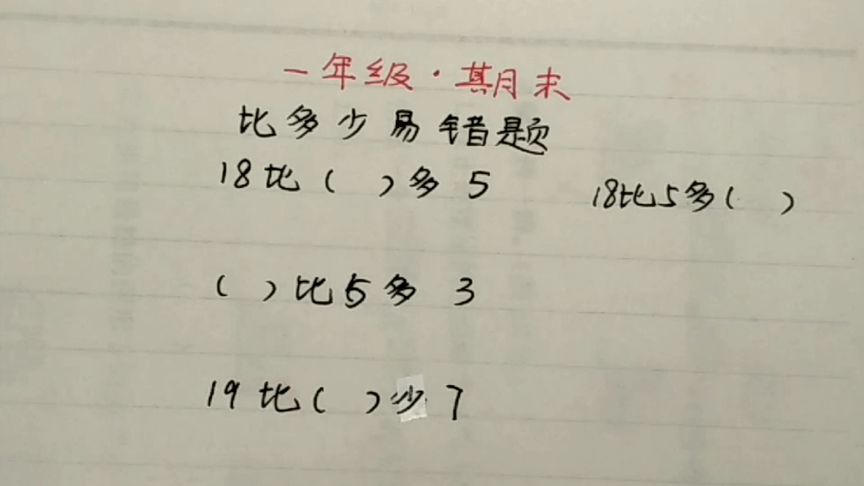 一年级·期末
比多少易错题
18比（ ）多5
18比5多（ ）
（ ）比5多 3
19比（ ）少7